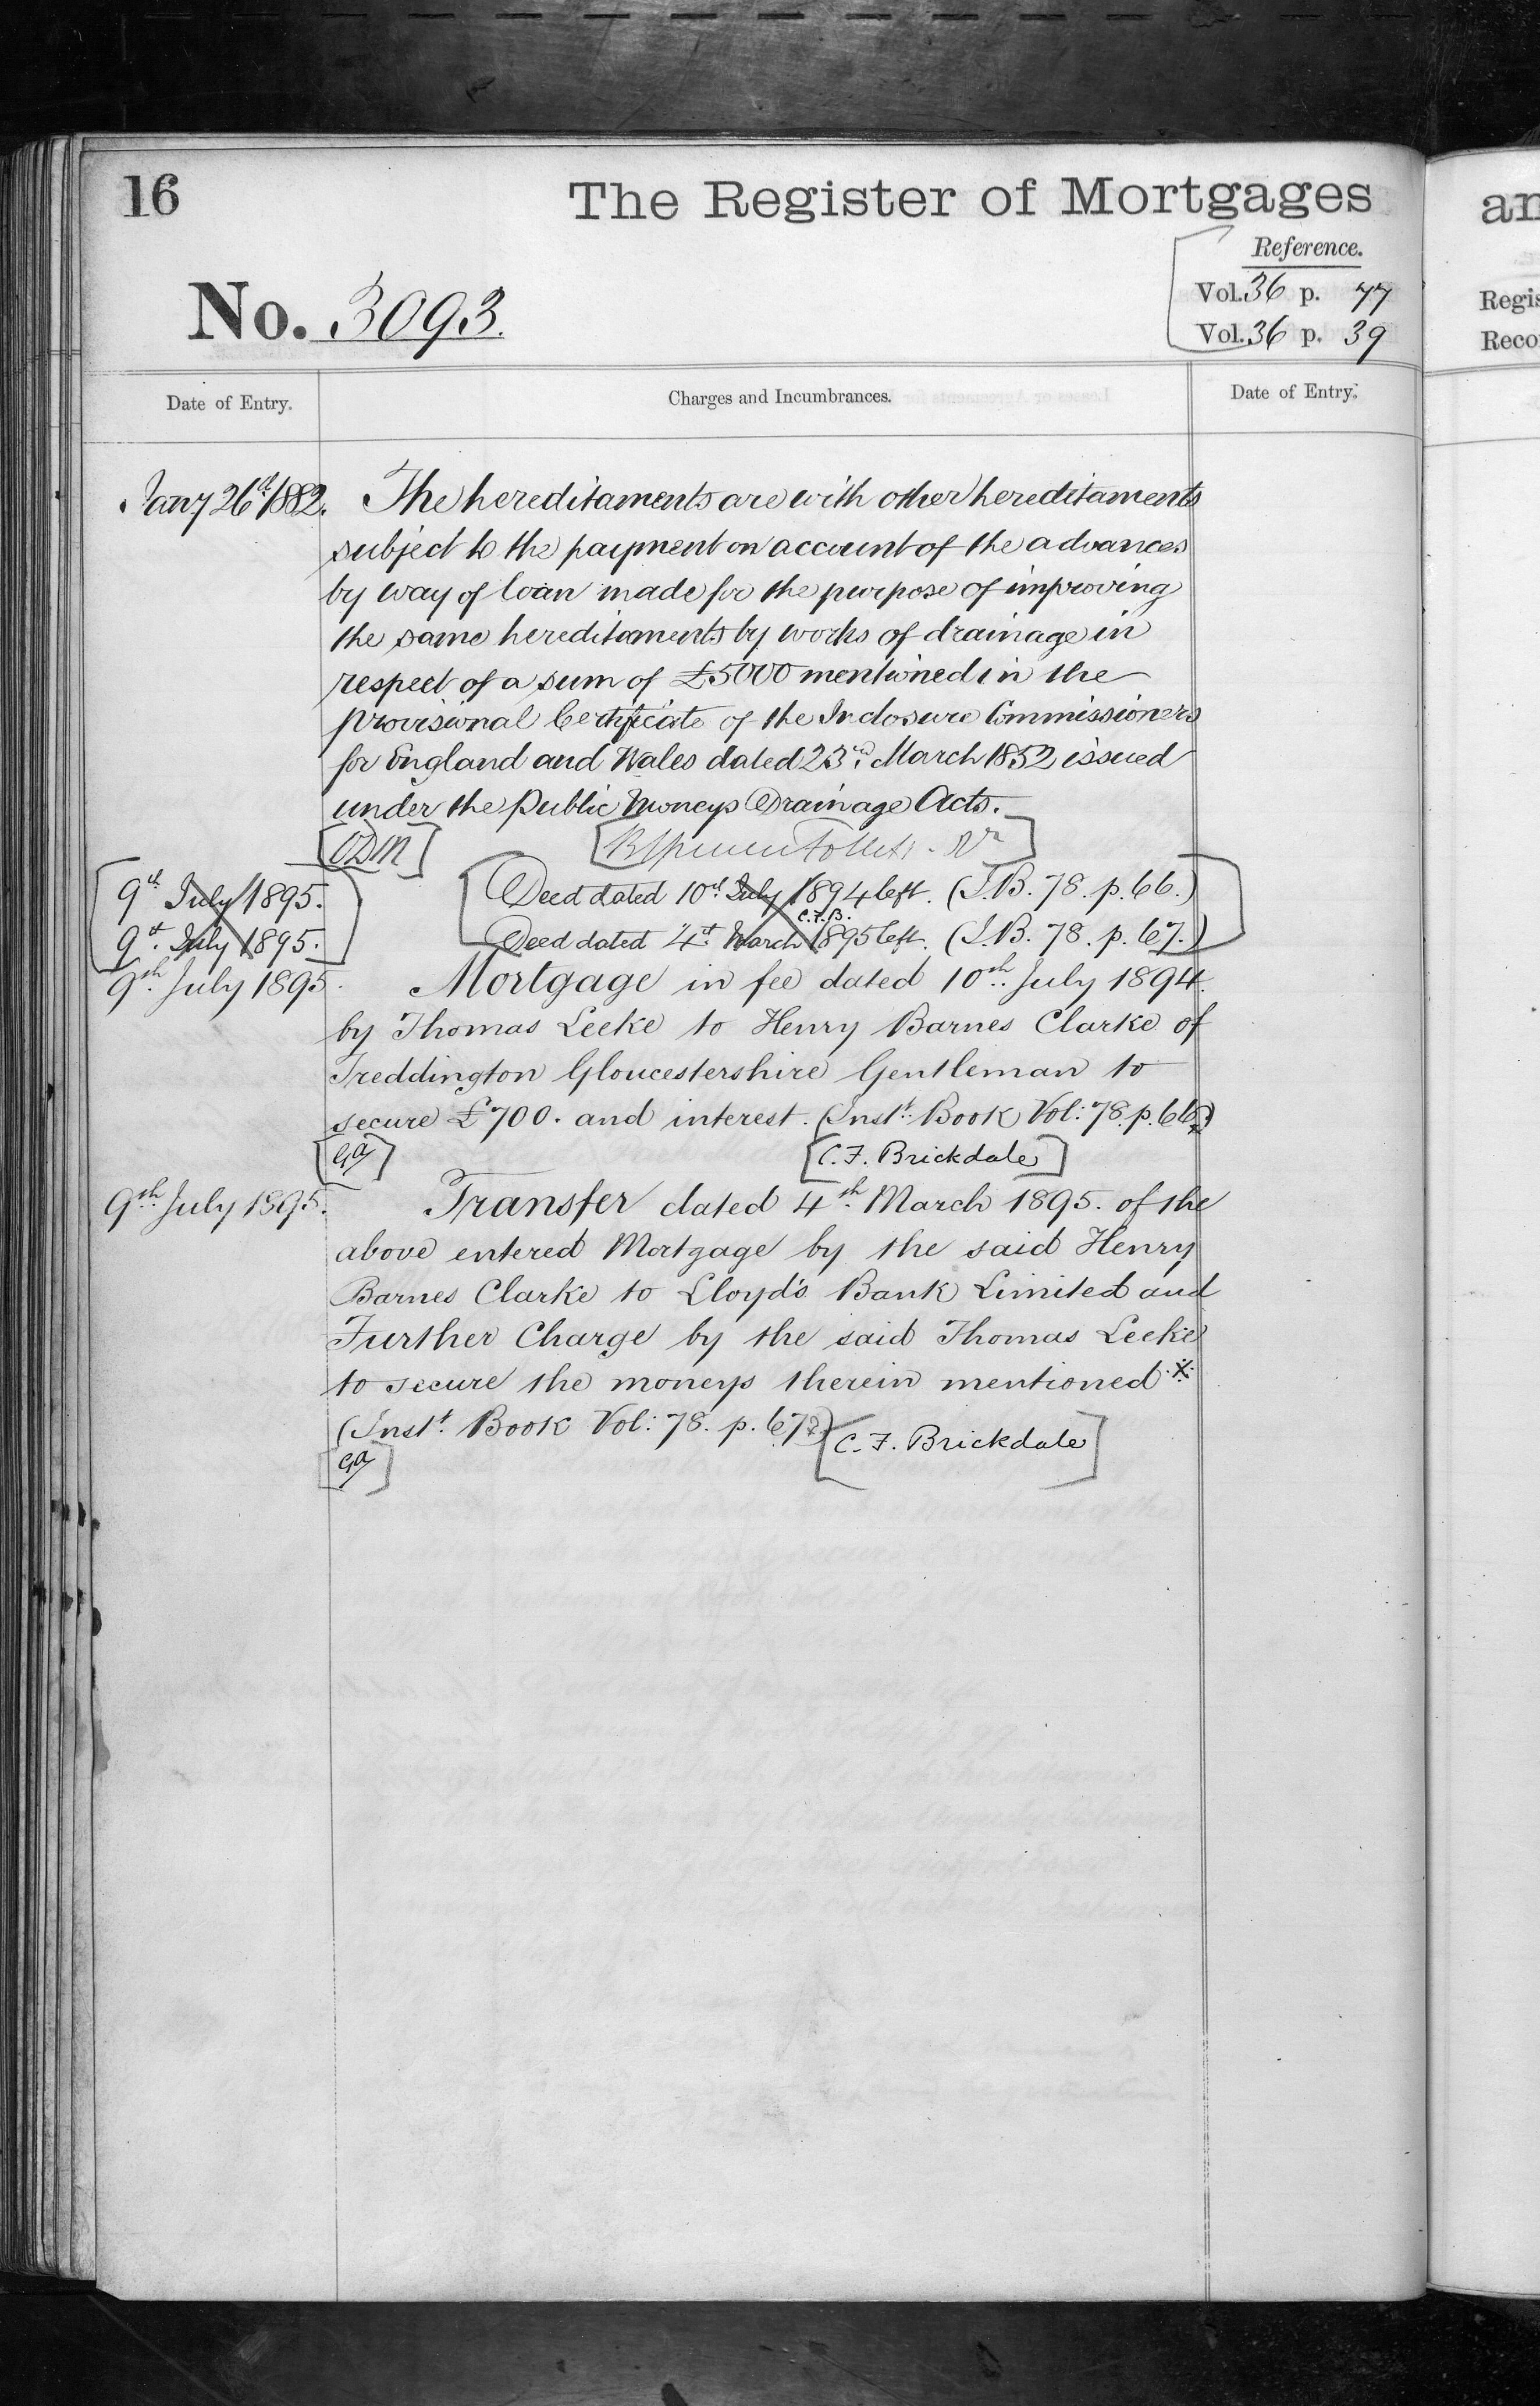 16
The Register of Mortgages
an
Reference.
Vol. 36 p. 77
Vol. 36 p. 39
No. 3093.
Regis
Reco
Date of Entry.
Charges and Incumbrances.
Date of Entry.
Jany 26th 1882. The hereditaments are with other hereditaments
subject to the payment on account of the advances
by way of loan made for the purpose of improving
the same hereditaments by works of drainage in
respect of a sum of £5000 mentioned in the
provisional Certificate of the Inclosure Commissioners
for England and Wales dated 23rd March 1852 issued
under the Public Moneys Drainage Acts.
9th July 1895. Deed dated 10th July 1894 left. (I.B. 78. p. 66.)
C.F.B.
9th July 1895. Deed dated 4th March 1895 left. (I.B. 78. p. 67.)
9th July 1895. Mortgage in fee dated 10th July 1894.
by Thomas Leeke to Henry Barnes Clarke of
Treddington Gloucestershire Gentleman to
secure £700. and interest. (Inst. Book Vol: 78. p. 66)
C.F. Brickdale
9th July 1895. Transfer dated 4th March 1895. of the
above entered Mortgage by the said Henry
Barnes Clarke to Lloyd's Bank Limited and
Further Charge by the said Thomas Leeke
to secure the moneys therein mentioned
(Inst. Book Vol: 78. p. 67)
C.F. Brickdale